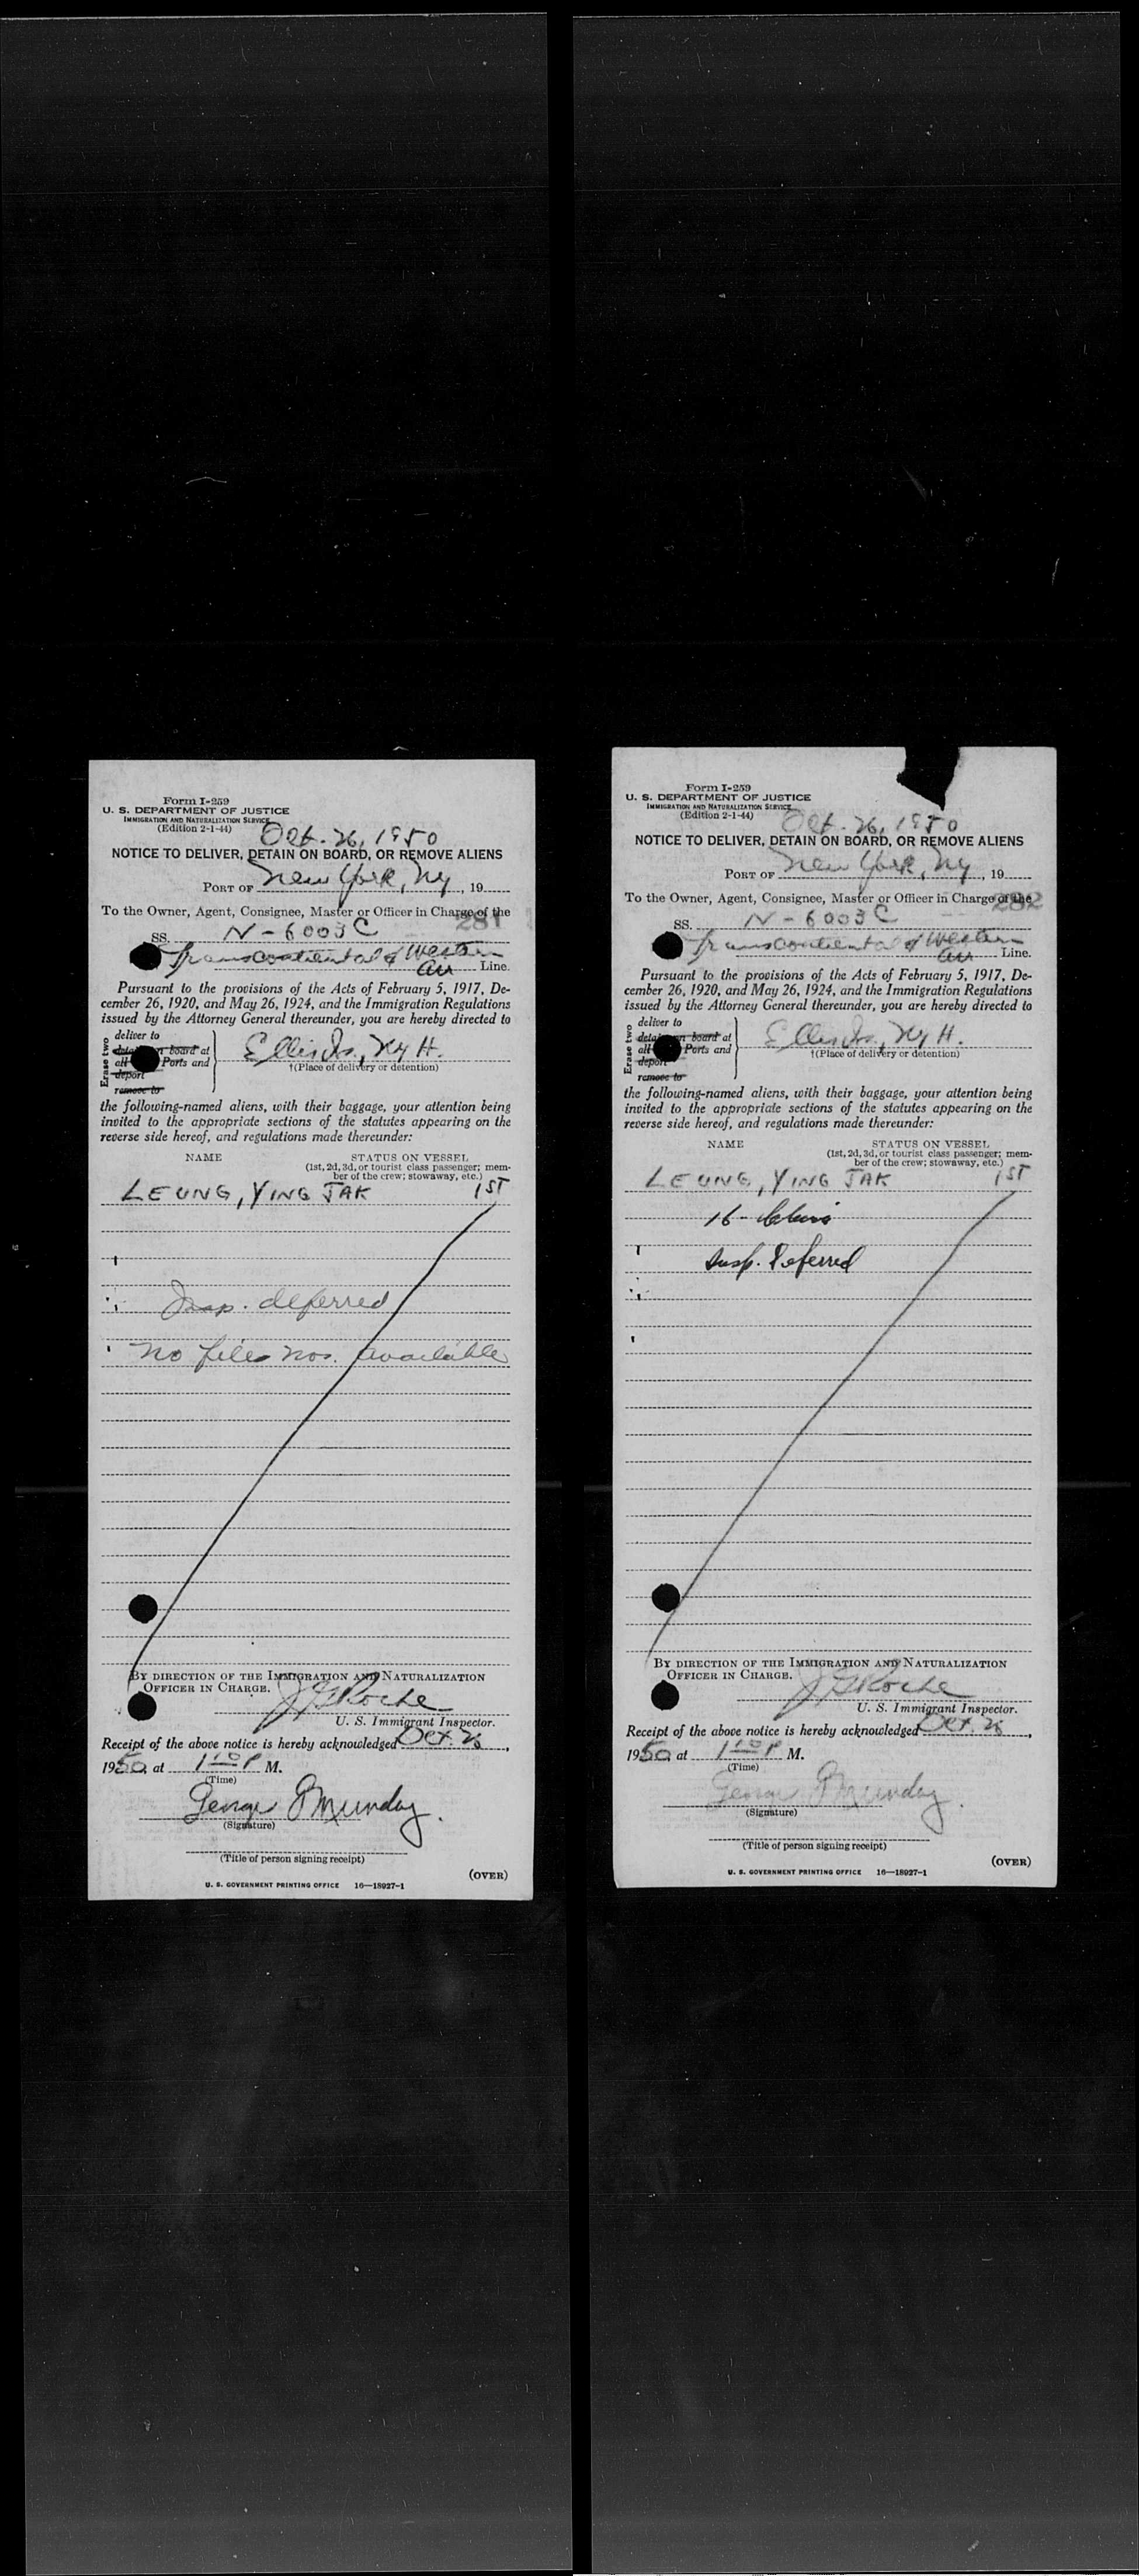 Form I-259
U. S. DEPARTMENT OF JUSTICE
IMMIGRATION AND NATURALIZATION SERVICE
(Edition 2-1-44)
Oct. 26, 1950
NOTICE TO DELIVER, DETAIN ON BOARD, OR REMOVE ALIENS
PORT OF New York, NY, 19
To the Owner, Agent, Consignee, Master or Officer in Charge of the
281
SS. N-6003C
Transcontinental & Western
Air Line.
Pursuant to the provisions of the Acts of February 5, 1917, De-
cember 26, 1920, and May 26, 1924, and the Immigration Regulations
issued by the Attorney General thereunder, you are hereby directed to
Erase two
deliver to
board at
all Ports and
deport
remove to
Ellis Is., NYH.
†(Place of delivery or detention)
the following-named aliens, with their baggage, your attention being
invited to the appropriate sections of the statutes appearing on the
reverse side hereof, and regulations made thereunder:
NAME STATUS ON VESSEL
(1st, 2d, 3d, or tourist class passenger; mem-
ber of the crew; stowaway, etc.)
LEUNG, YING JAK 1ST
Insp. deferred
No files nos. available
BY DIRECTION OF THE IMMIGRATION AND NATURALIZATION
OFFICER IN CHARGE.
J G Roche
U. S. Immigrant Inspector.
Receipt of the above notice is hereby acknowledged Oct. 26,
1950, at 1 10 P M.
(Time)
George Munday
(Signature)
(Title of person signing receipt)
(OVER)
U. S. GOVERNMENT PRINTING OFFICE 16—18927-1
Form I-259
U. S. DEPARTMENT OF JUSTICE
IMMIGRATION AND NATURALIZATION SERVICE
(Edition 2-1-44)
Oct. 26, 1950
NOTICE TO DELIVER, DETAIN ON BOARD, OR REMOVE ALIENS
PORT OF New York, NY, 19
To the Owner, Agent, Consignee, Master or Officer in Charge of the
282
SS. N-6003C
Transcontinental & Western
Air Line.
Pursuant to the provisions of the Acts of February 5, 1917, De-
cember 26, 1920, and May 26, 1924, and the Immigration Regulations
issued by the Attorney General thereunder, you are hereby directed to
Erase two
deliver to
board at
all Ports and
deport
remove to
Ellis Is., NYH.
†(Place of delivery or detention)
the following-named aliens, with their baggage, your attention being
invited to the appropriate sections of the statutes appearing on the
reverse side hereof, and regulations made thereunder:
NAME STATUS ON VESSEL
(1st, 2d, 3d, or tourist class passenger; mem-
ber of the crew; stowaway, etc.)
LEUNG, YING JAK 1ST
16-
Insp. Deferred
BY DIRECTION OF THE IMMIGRATION AND NATURALIZATION
OFFICER IN CHARGE.
J G Roche
U. S. Immigrant Inspector.
Receipt of the above notice is hereby acknowledged Oct. 26,
1950 at 1 10 P M.
(Time)
George Munday
(Signature)
(Title of person signing receipt)
(OVER)
U. S. GOVERNMENT PRINTING OFFICE 16—18927-1